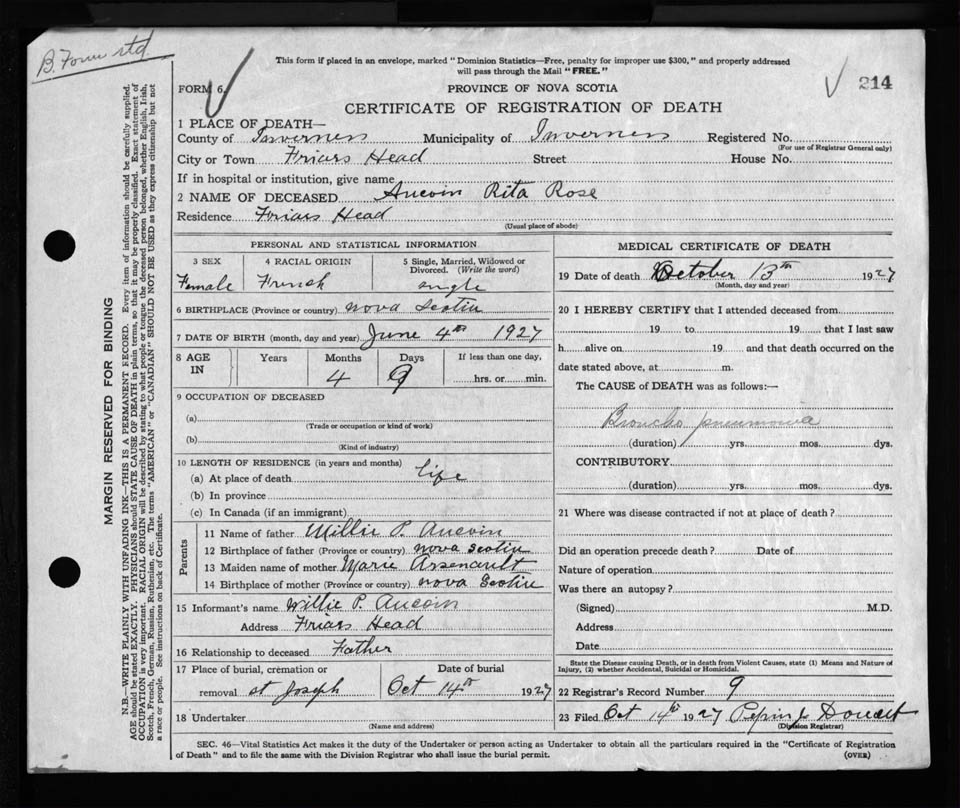 B. Form std
This form if placed in an envelope, marked "Dominion Statistics—Free, penalty for improper use $300," and properly addressed
will pass through the Mail "FREE."
FORM 6. PROVINCE OF NOVA SCOTIA 214
CERTIFICATE OF REGISTRATION OF DEATH
1 PLACE OF DEATH—
County of Inverness Municipality of Inverness Registered No.
(For use of Registrar General only)
City or Town Friars Head Street House No.
If in hospital or institution, give name
2 NAME OF DECEASED Aucoin Rita Rose
Residence Friars Head
(Usual place of abode)
PERSONAL AND STATISTICAL INFORMATION
3 SEX 4 RACIAL ORIGIN 5 Single, Married, Widowed or
Divorced. (Write the word)
Female French single
6 BIRTHPLACE (Province or country) Nova Scotia
7 DATE OF BIRTH (month, day and year) June 4th 1927
8 AGE IN Years Months Days If less than one day,
4 9 hrs. or min.
9 OCCUPATION OF DECEASED
(a)
(Trade or occupation or kind of work)
(b)
(Kind of industry)
10 LENGTH OF RESIDENCE (in years and months)
(a) At place of death life
(b) In province
(c) In Canada (if an immigrant)
Parents
11 Name of father Willie P. Aucoin
12 Birthplace of father (Province or country) Nova Scotia
13 Maiden name of mother Marie Arsenault
14 Birthplace of mother (Province or country) Nova Scotia
15 Informant's name Willie P. Aucoin
Address Friars Head
16 Relationship to deceased Father
17 Place of burial, cremation or Date of burial
removal St Joseph Oct 14th 1927
18 Undertaker
(Name and address)
MEDICAL CERTIFICATE OF DEATH
19 Date of death October 13th 1927
(Month, day and year)
20 I HEREBY CERTIFY that I attended deceased from
19 to 19 that I last saw
h alive on 19 and that death occurred on the
date stated above, at m.
The CAUSE of DEATH was as follows:—
Broncho pneumonia
(duration) yrs. mos. dys.
CONTRIBUTORY
(duration) yrs. mos. dys.
21 Where was disease contracted if not at place of death?
Did an operation precede death? Date of
Nature of operation
Was there an autopsy?
(Signed) M.D.
Address
Date
State the Disease causing Death, or in death from Violent Causes, state (1) Means and Nature of
Injury, (2) whether Accidental, Suicidal or Homicidal.
22 Registrar's Record Number 9
23 Filed Oct 14th 1927
(Division Registrar)
SEC. 46—Vital Statistics Act makes it the duty of the Undertaker or person acting as Undertaker to obtain all the particulars required in the "Certificate of Registration
of Death" and to file the same with the Division Registrar who shall issue the burial permit. (OVER)
MARGIN RESERVED FOR BINDING
N.B.—WRITE PLAINLY WITH UNFADING INK—THIS IS A PERMANENT RECORD. Every item of information should be carefully supplied.
AGE should be stated EXACTLY. PHYSICIANS should STATE CAUSE OF DEATH in plain terms, so that it may be properly classified. Exact statement of
OCCUPATION is very important. RACIAL ORIGIN will be described by stating to what people or tongue the deceased person belonged, whether English, Irish,
Scotch, French, German, Russian, Ruthenian, etc. The terms "AMERICAN" or "CANADIAN" SHOULD NOT BE USED as they express citizenship but not
a race or people. See instructions on back of Certificate.